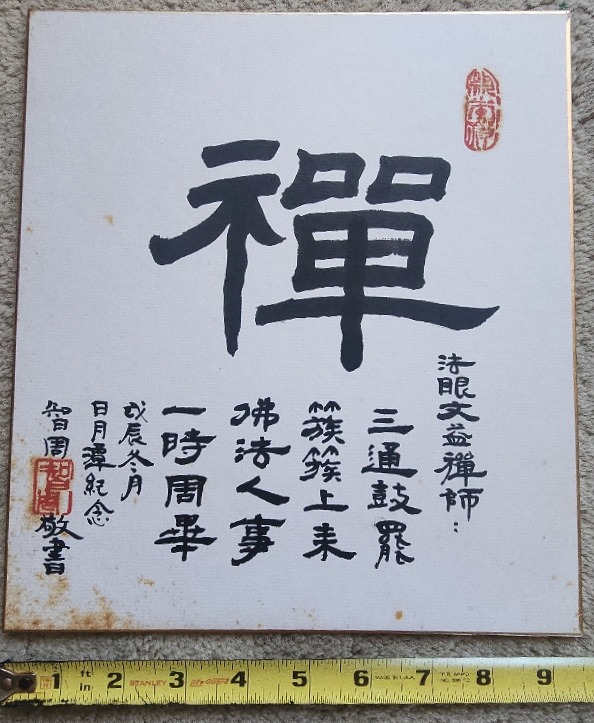 禪
法眼文益禪師：
三通鼓罷
簇簇上来
佛法人事
一時周畢
戊辰冬月
日月潭紀念
智周敬書
ft 1 2 3 4 5 6 7 8 9
in STANLEY life guard MADE IN U.S.A.